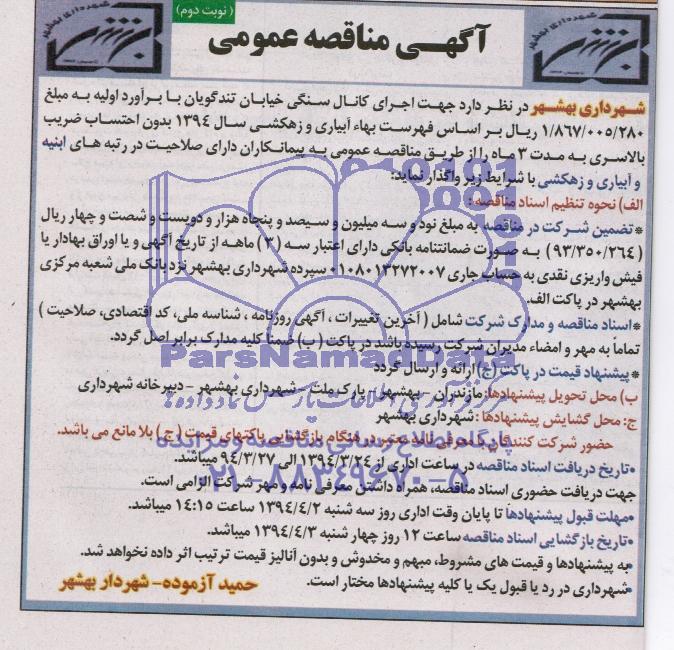 (نوبت دوم)
آگهـی مناقصه عمومی
شهرداری بهشهر در نظر دارد جهت اجرای کانال سنگی خیابان تندگویان با برآورد اولیه به مبلغ
۱/۸۶۷/۰۰۵/۲۸۰ ریال بر اساس فهرست بهاء آبیاری و زهکشی سال ۱۳۹۴ بدون احتساب ضریب
بالاسری به مدت ۳ ماه را از طریق مناقصه عمومی به پیمانکاران دارای صلاحیت در رتبه های ابنیه
و آبیاری و زهکشی با شرایط زیر واگذار نماید:
الف) نحوه تنظیم اسناد مناقصه:
*تضمین شرکت در مناقصه به مبلغ نود و سه میلیون و سیصد و پنجاه هزار و دویست و شصت و چهار ریال
(۹۳/۳۵۰/۲۶۴) به صورت ضمانتنامه بانکی دارای اعتبار سه (۳) ماهه از تاریخ آگهی و یا اوراق بهادار یا
فیش واریزی نقدی به حساب جاری ۰۱۰۸۰۱۳۲۷۲۰۰۷ سپرده شهرداری بهشهر نزد بانک ملی شعبه مرکزی
بهشهر در پاکت الف.
*اسناد مناقصه و مدارک شرکت شامل (آخرین تغییرات، آگهی روزنامه، شناسه ملی، کد اقتصادی، صلاحیت)
تماماً به مهر و امضاء مدیران شرکت رسیده باشد در پاکت (ب) ضمناً کلیه مدارک برابر اصل گردد.
*پیشنهاد قیمت در پاکت (ج) ارائه و ارسال گردد
ب) محل تحویل پیشنهادها: مازندران - بهشهر - پارک ملت - شهرداری بهشهر - دبیرخانه شهرداری
ج: محل گشایش پیشنهادها: شهرداری بهشهر
حضور شرکت کنندگان با معرفی نامه معتبر در هنگام بازگشایی پاکتهای قیمت (ج) بلا مانع می باشد.
•تاریخ دریافت اسناد مناقصه در ساعت اداری از ۱۳۹۴/۳/۲۴ الی ۹۴/۳/۲۷ میباشد.
جهت دریافت حضوری اسناد مناقصه، همراه داشتن معرفی نامه و مهر شرکت الزامی است.
•مهلت قبول پیشنهادها تا پایان وقت اداری روز سه شنبه ۱۳۹۴/۴/۲ ساعت ۱۴:۱۵ میباشد.
•تاریخ بازگشایی اسناد مناقصه ساعت ۱۲ روز چهار شنبه ۱۳۹۴/۴/۳ میباشد.
•به پیشنهادها و قیمت های مشروط، مبهم و مخدوش و بدون آنالیز قیمت ترتیب اثر داده نخواهد شد.
•شهرداری در رد یا قبول یک یا کلیه پیشنهادها مختار است.
حمید آزموده - شهردار بهشهر
ParsNamadData
۰۲۱-۸۸۳۴۹۶۷۰-۵